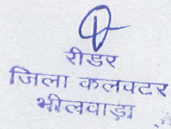 रीडर
जिला कलक्टर
भीलवाड़ा